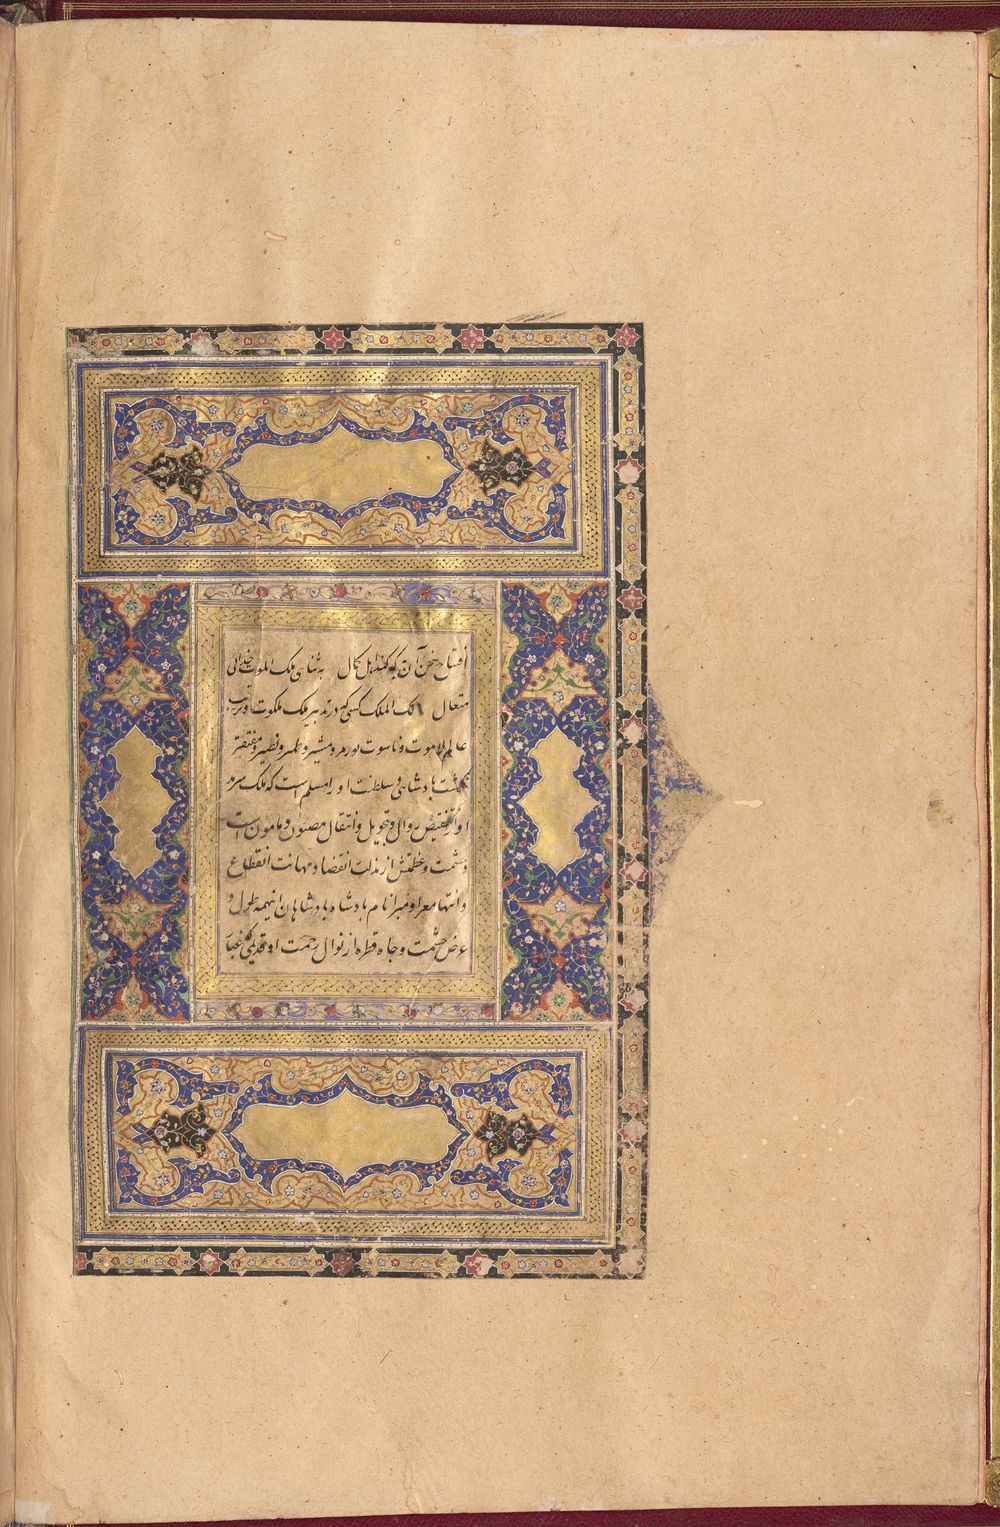 افتتاح سخن آن به که کنند اهل کمال به ثنای ملک الملک خدای
متعال مالک الملکی که در تدبیر ملک ملکوت و ترتیب
عالم لاهوت و ناسوت بوزیر و مشیر و ظهیر و نظیر مفتقر
نگشت پادشاهی و سلطنت او را مسلم است که ملک سرمد
او از نقیض زوال و تحویل و انتقال مصئون و مامون است
و حشمت و عظمتش از مذلت انقضا و مهانت انقطاع
و انتها معرا و مبرا نام پادشاه پادشاهان اینهمه طول و
عرض حشمت و جاه قطره از نوال رحمت او